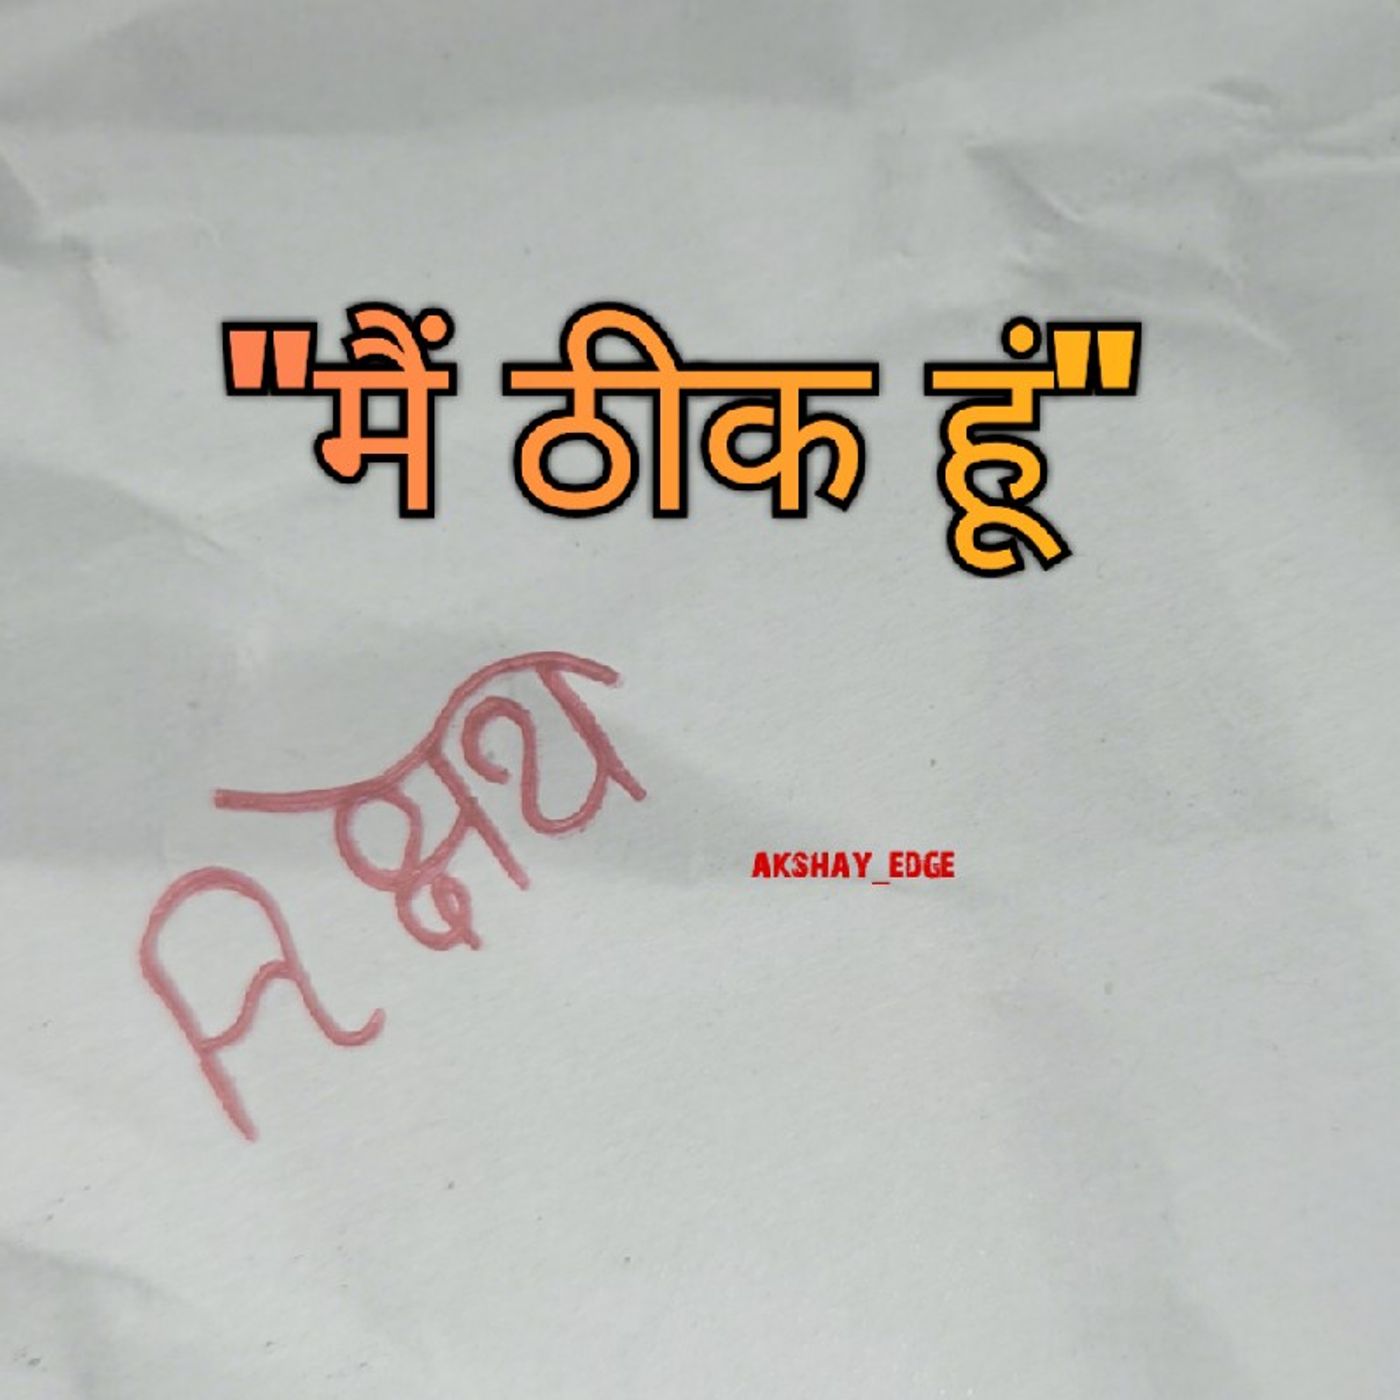 "मैं ठीक हूं"
Aक्षय
AKSHAY_EDGE